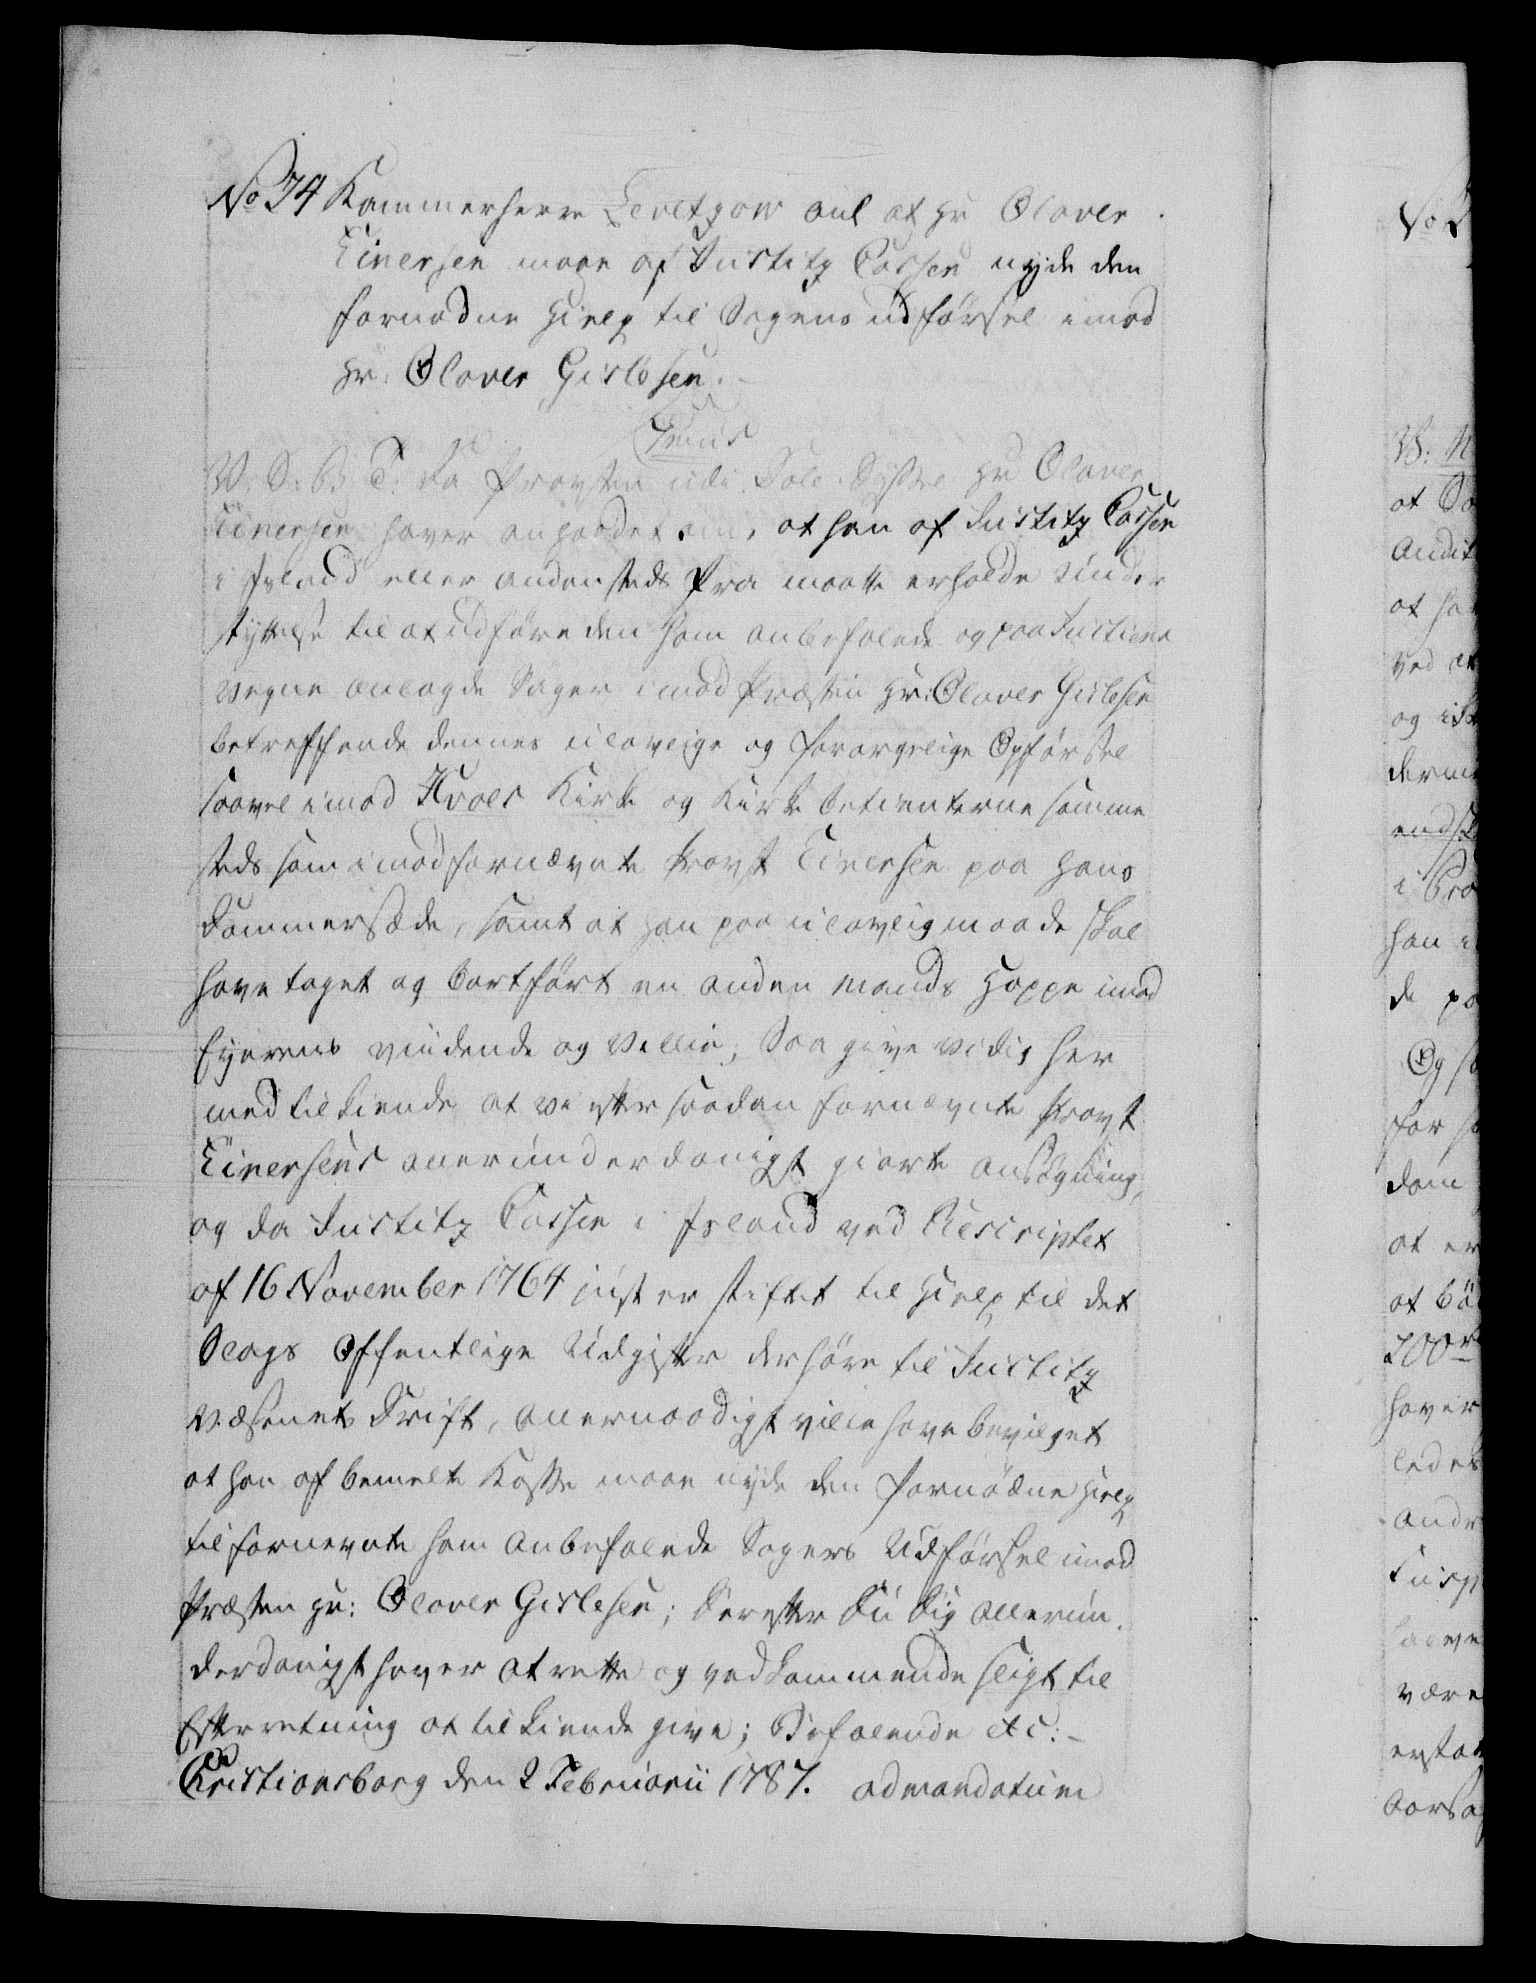 No 74 Kammerherre Levetzow anl at Hr Olaver
Einersen maae af Justitz Cassen nyde den
fornødne Hielp til Sagens udførsel imod
Hr: Olaver Gislesen.
Chr. 7mus
V. S. G. T: da Provsten udi Dale Syssel Hr Olaver
Einersen haver anholdet om, at han af Justitz Cassen
i Island eller andensteds fra maatte erholde Under
støttelse til at udføre den ham anbefalede og paa Justiens
vegne anlagde Sager imod Præsten Hr: Olaver Gislesen
betreffende dennes ulovlige og forargelige Opførsel
saavel imod Hvols Kirke og Kirke betienterne samme
steds som imod fornævnte Provst Einersen paa hans
Dommersæde, samt at han paa ulovlig maade skal
have taget og bortført en anden Mands Hoppe imod
Eyerens vidende og Villie; Saa give vi dig her
med tilkiende at vi efter saadan fornævnte Provst
Einersens allerunderdanigst giorte ansøgning,
og da Justitz Cassen i Island ved Rescriptet
af 16 November 1764 just er stiftet til Hielp til det
Slags Offentlige Udgifter der høre til Justitz
væsenets Drift, allernaadigst ville have bevilget
at han af bemelte Kasse maae nyde den fornødne Hielp
til fornevnte ham anbefalede Sagers Udførsel imod
Præsten Hr: Olaver Gislesen; Derefter Du dig allerun-
derdanigst haver at rette og vedkommende sligt til
Efterretning at tilkiende give; Befalende etc:-
Christiansborg den 2 Februarii 1787. ad mandatum